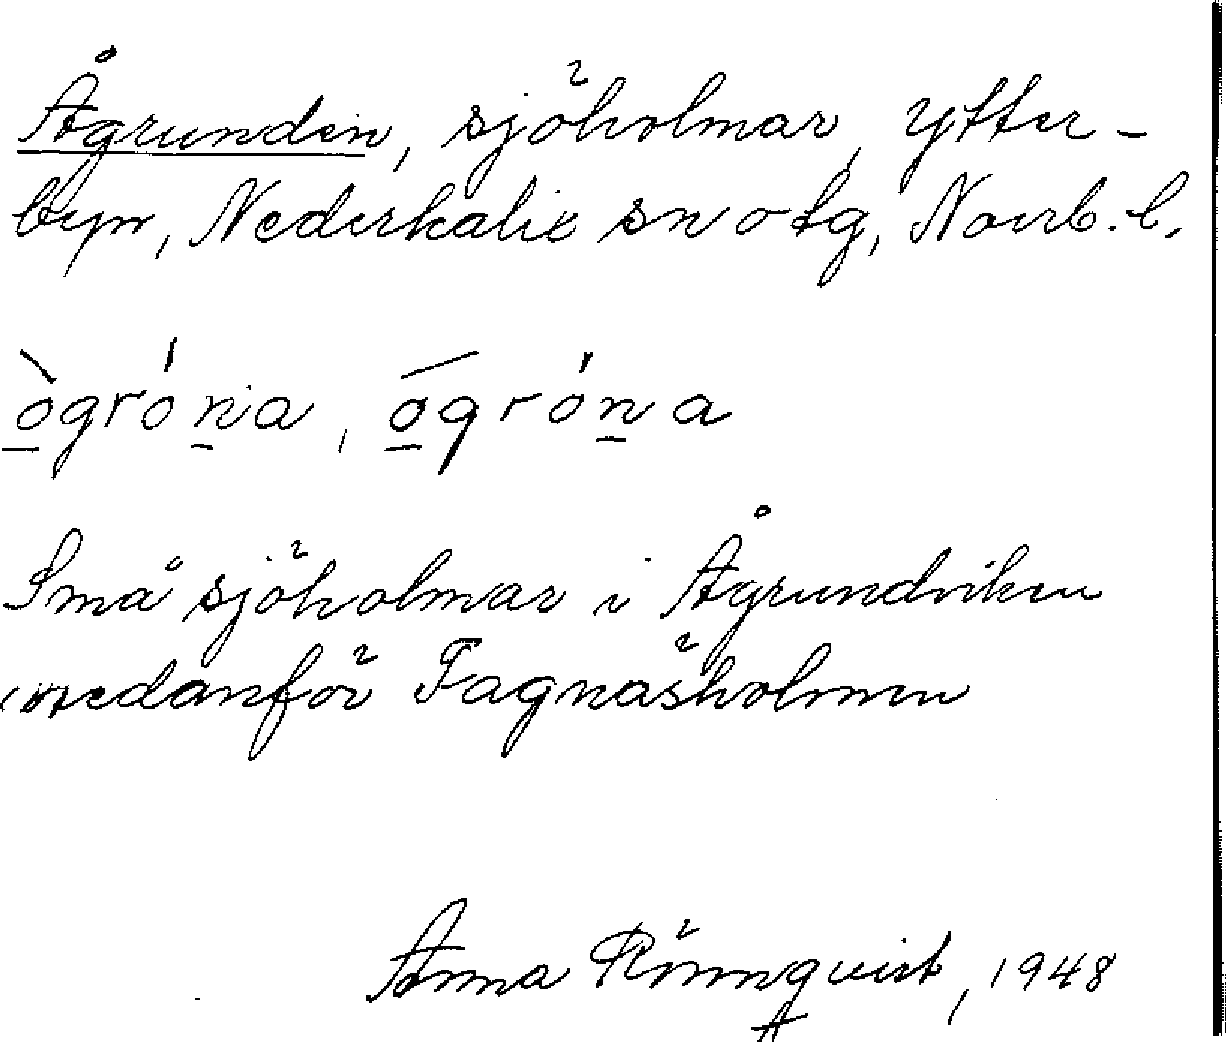 Ågrunden, sjöholmar, Ytter-
byn, Nederkalix sn o tg, Norrb. l.
ògróna, ógróna
Små sjöholmar i Ågrundviken
nedanför Fagnäsholmen
Anna Rönnqvist, 1948